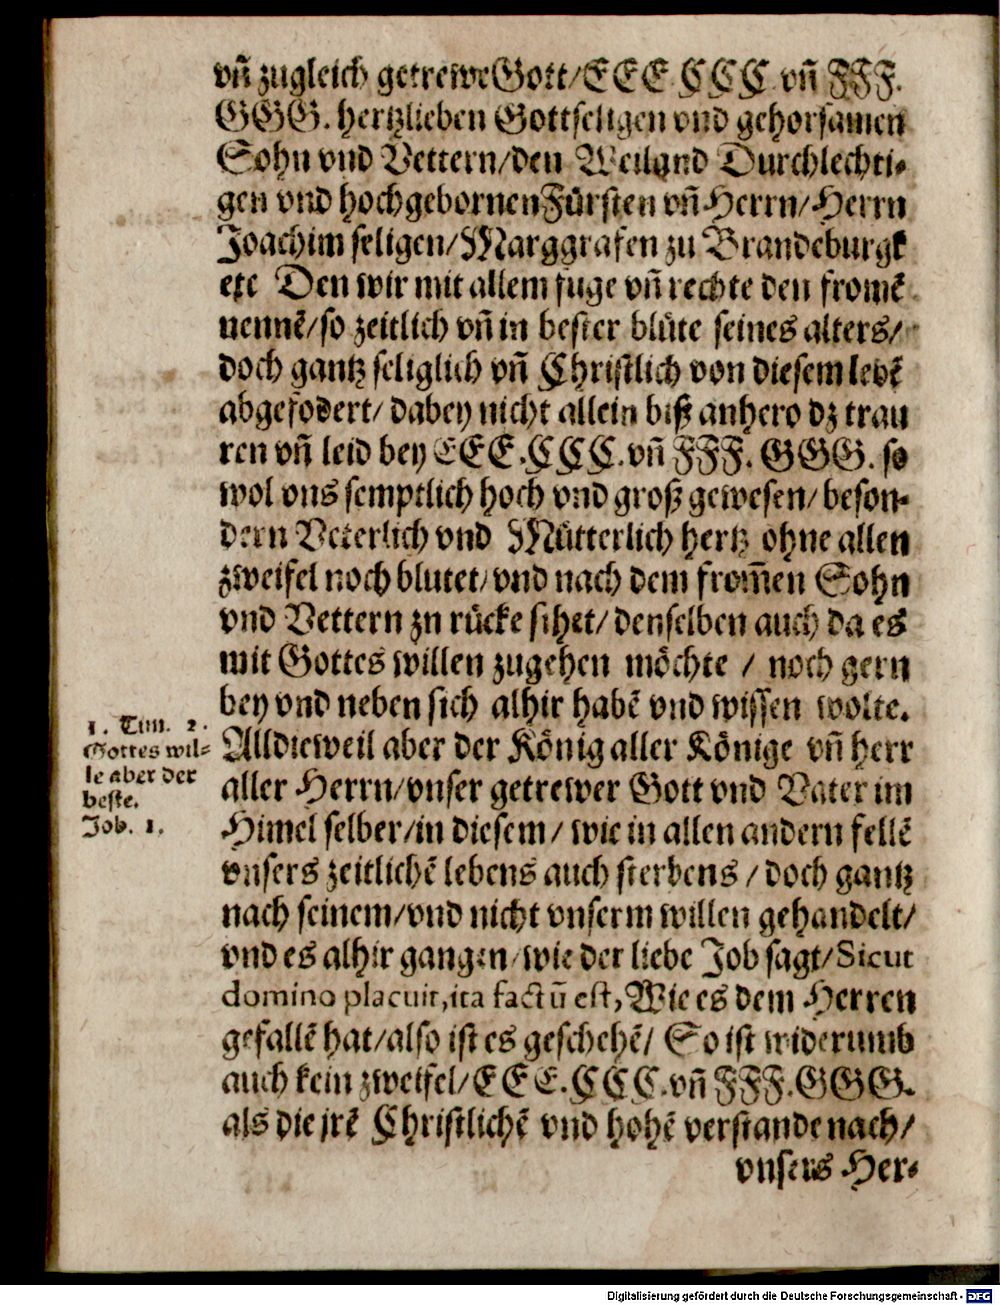 vñ zugleich getrewe Gott/ E E E. C C C. vñ F F F.
G G G. hertzlieben Gottseligen vnd gehorsamen
Sohn vnd Vettern/ den Weiland Durchlechti⸗
gen vnd hochgebornen Fürsten vñ Herrn/ Herrn
Joachim seligen/ Marggrafen zu Brandeburgk
etc Den wir mit allem fuge vñ rechte den fromē
nennē/ so zeitlich vñ in bester blüte seines alters/
doch gantz seliglich vñ Christlich von diesem lebē
abgefodert/ dabey nicht allein biß anhero dz trau
ren vñ leid bey E E E. C C C. vñ F F F. G G G. so
wol vns semptlich hoch vnd groß gewesen/ beson⸗
dern Veterlich vnd Mütterlich hertz ohne allen
zweifel noch blutet/ vnd nach dem from̄en Sohn
vnd Vettern zn rücke sihet/ denselben auch da es
mit Gottes willen zugehen möchte / noch gern
bey vnd neben sich alhir habē vnd wissen wolte.
1. Tim. 2.
Gottes wil⸗
le aber der
beste.
Job. 1.
Alldieweil aber der König aller Könige vñ herr
aller Herrn/ vnser getrewer Gott vnd Vater im
Himel selber/ in diesem/ wie in allen andern fellē
vnsers zeitlichē lebens auch sterbens / doch gantz
nach seinem/ vnd nicht vnserm willen gehandelt/
vnd es alhir gangen/ wie der liebe Job sagt/ Sicut
domino placuit, ita factū est, Wie es dem Herren
gefallē hat/ also ist es geschehē/ So ist widerumb
auch kein zweifel/ E E E. C C C. vñ F F F. G G G.
als die jrē Christlichē vnd hohē verstande nach/
vnsers Her⸗
Digitalisierung gefördert durch die Deutsche Forschungsgemeinschaft - DFG